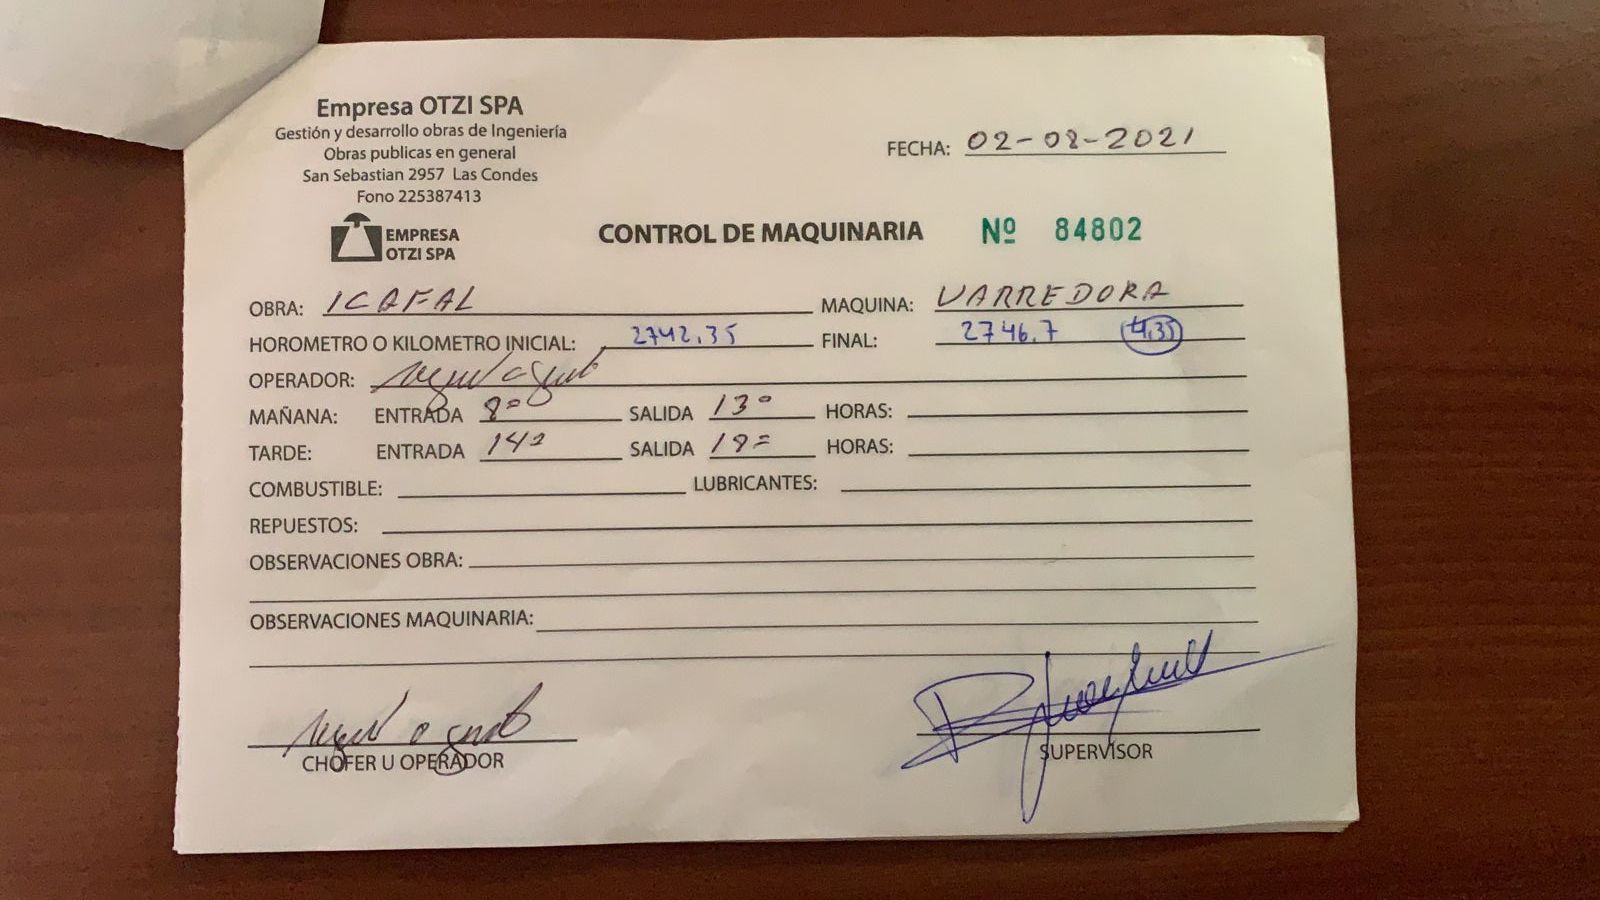 Empresa OTZI SPA
Gestión y desarrollo obras de Ingeniería
Obras publicas en general
San Sebastian 2957 Las Condes
Fono 225387413
FECHA: 02-08-2021
EMPRESA
OTZI SPA
CONTROL DE MAQUINARIA Nº 84802
OBRA: ICAFAL MAQUINA: VARREDORA
HOROMETRO O KILOMETRO INICIAL: 2742.35 FINAL: 2746.7 4.35
OPERADOR:
MAÑANA: ENTRADA 8º SALIDA 13º HORAS:
TARDE: ENTRADA 14º SALIDA 18º HORAS:
COMBUSTIBLE: LUBRICANTES:
REPUESTOS:
OBSERVACIONES OBRA:
OBSERVACIONES MAQUINARIA:
CHOFER U OPERADOR SUPERVISOR